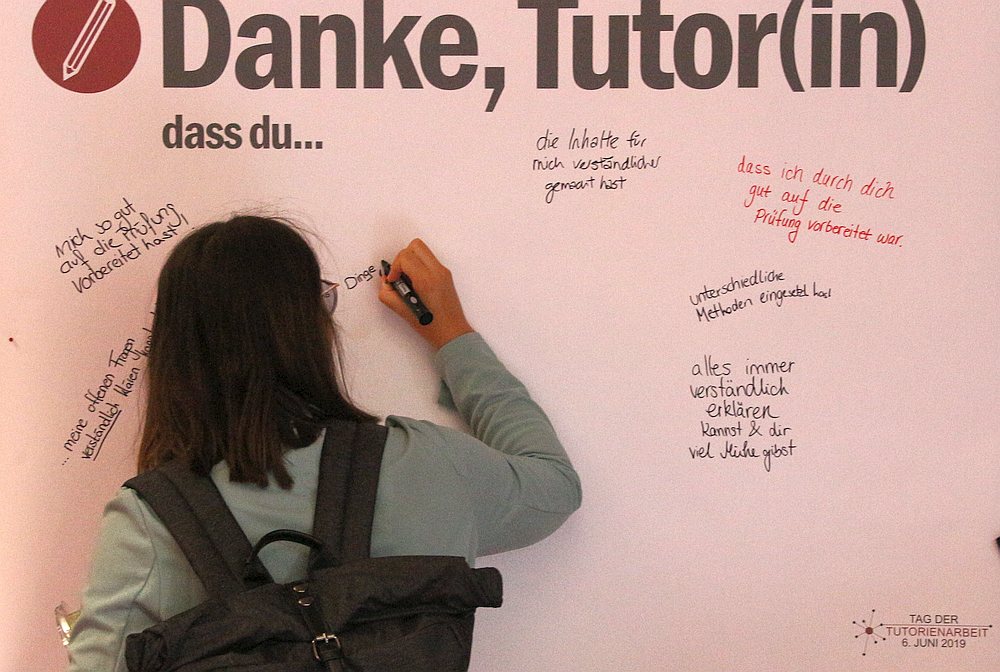 Danke, Tutor(in)
dass du...
die Inhalte für
mich verständlicher
gemacht hast
dass ich durch dich
gut auf die
Prüfung vorbereitet war.
mich so gut
auf die Prüfung
vorbereitet hast!
Dinge
unterschiedliche
Methoden eingesetzt hast
... meine offenen Fragen
verständlich klären
alles immer
verständlich
erklären
kannst & dir
viel Mühe gibst
TAG DER
TUTORIENARBEIT
6. JUNI 2019